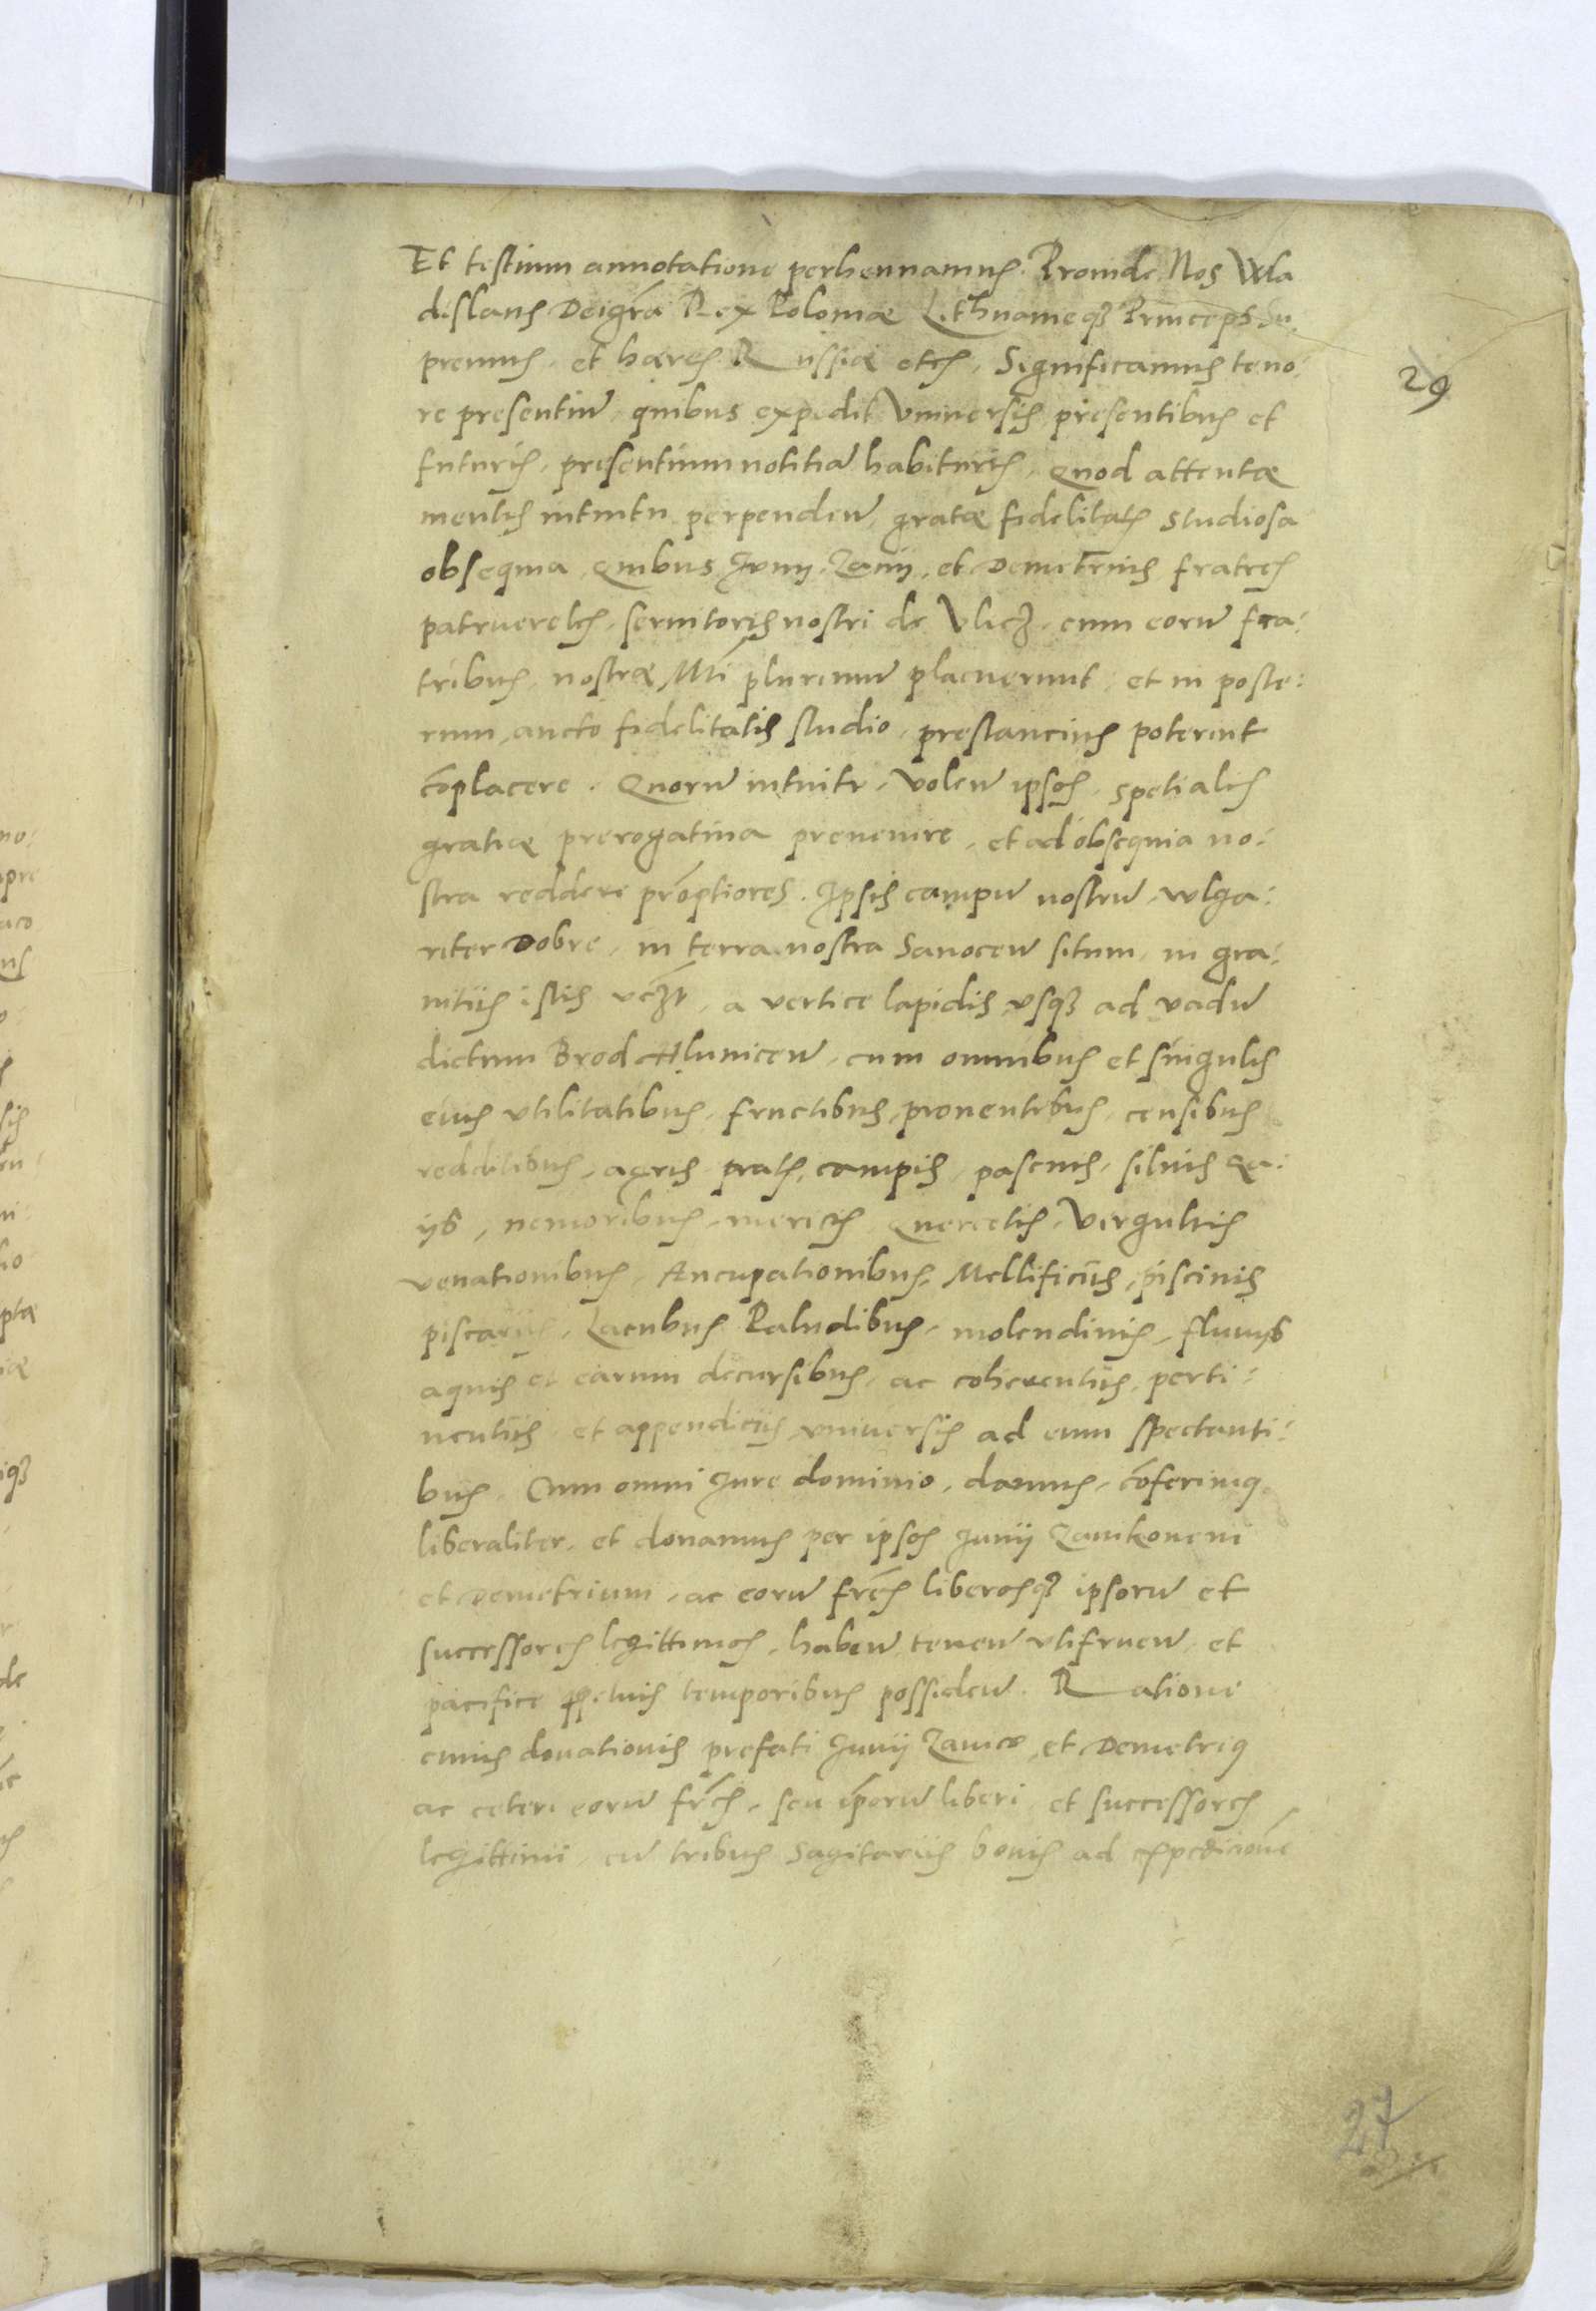 Et testium annotatione perhennamus. Proinde Nos Wla
dislaus Dei gr̃a Rex Poloniæ Lithuanieqʒ Princeps Su¬
premus et hæres Russiæ etc̃. Significamus teno:
re presentiũ quibus expedit Vniversis presentibus et
futuris, presentium notitiã habituris, Quod attentæ
mentis intuitu perpendeñ, gratæ fidelitatis studiosa
obsequia, Quibus Juny, Zaniy, et Demetrius fratres
patruereles, servitoris nostri de Vlicʒ, cum eorũ fra:
tribus, nostræ Mti plurimũ placuerunt, et in poste:
rum, aucto fidelitatis studio, prestancius poterint
cõplacere. Quorũ intuitu, Voleñ ipsos, spetialis
gratiæ prerogativa prevenire, et ad obsequia no:
stra reddere prõptiores. Ipsis campũ nostrũ, vulga:
riter Dobre, in terra nostra Sanoceñ situm, in gra:
nitiis istis vcʒt, a vertice lapidis vsqʒ ad vadũ
dictum Brod Hluniceñ, cum omnibus et singulis
eius vtilitatibus, fructibus, proventibus, censibus
redditibus, agris pratis, campis, pascuis, silvis Ga:
iis, nemoribus, mericis, Quercetis, Virgultis
venationibus, Aucupationibus, Mellificiis, piscinis
piscariis, Lacubus Paludibus, molendinis, fluviis
aquis et earum decursibus, ac coherentiis, perti:
nentiis et appendiciis vniversis ad eum spectanti:
bus, Cum omni Jure dominio, damus, cõferimus
liberaliter, et donamus per ipsos Juny Zanikonem
et Demetrium, ac eorũ frẽs liberosqʒ ipsorũ et
successores legittimos, habeñ, teneñ vtifrueñ, et
pacifice ꝑpetuis temporibus possideñ. Ratione
cuius donationis prefati Juny Zanico, et Demetrius
ac ceteri eorũ frẽs, seu ip̃orũ liberi, et successores
legittimi, cũ tribus Sagitariis bonis ad expedicionẽ
29
27